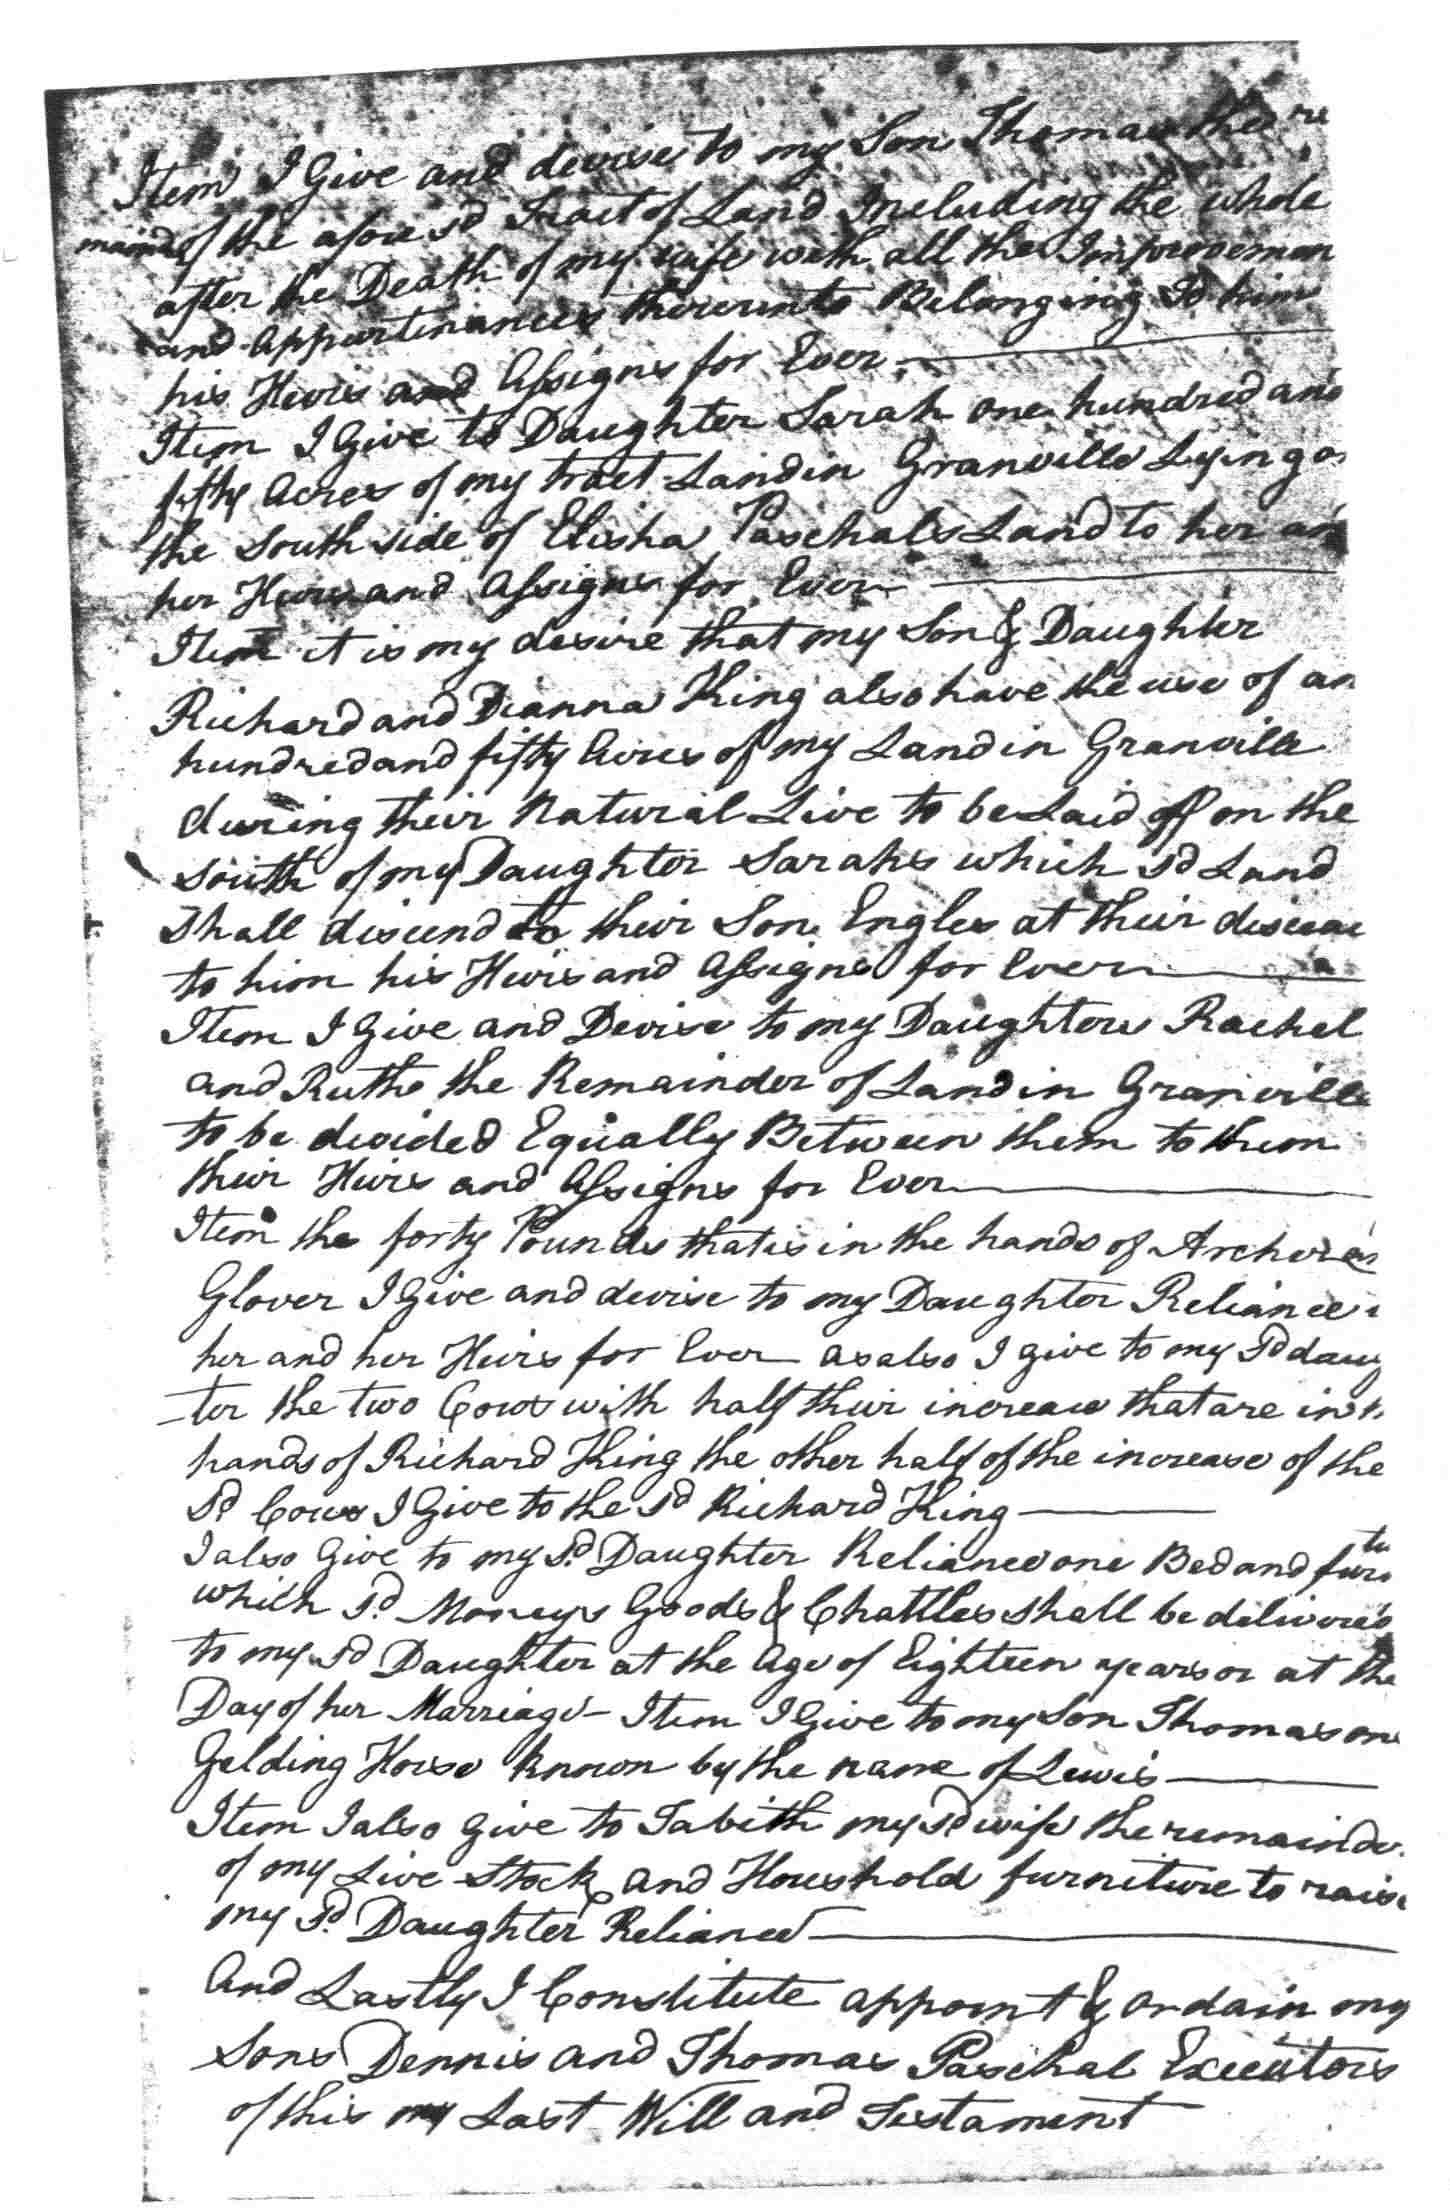 Item I Give and devise to my Son Thomas the re
maind of the afore sd Tract of Land Including the whole
after the Death of my wife with all the Improvemen
and Appurtinances thereunto Belonging To him
his Heirs and Assigns for Ever
Item I Give to Daughter Sarah one hundred and
fifty Acres of my tract Land in Granville Lying o
the South side of Elisha Paschals Land to her an
her Heirs and Assigns for Ever
Item it is my desire that my Son & Daughter
Richard and Dianna King also have the use of an
hundred and fifty Acres of my Land in Granville
during their Natural Live to be Laid off on the
South of my Daughter Sarahs which sd Land
Shall discend to their Son Engles at their diseas
to him his Heirs and Assigns for Ever
Item I Give and Devise to my Daughters Rachel
and Ruth the Remainder of Land in Granville
to be devided Equially Between them to them
their Heirs and Assigns for Ever
Item the forty Pounds that is in the hands of
Glover I Give and devise to my Daughter Reliance
her and her Heirs for Ever as also I give to my sd daug
-ter the two Cows with half their increase that are in
hands of Richard King the other half of the increase of the
sd Cows I Give to the sd Richard King
I also Give to my sd Daughter Reliance one Bed and furn tu
which sd Moneys Goods & Chattles shall be delivered
to my sd Daughter at the Age of Eighteen years or at the
Day of her Marriage - Item I Give to my Son Thomas one
Gelding Horse known by the name of Lewis
Item I also Give to Tabith my sd wife the remainde
of my Live Stock and Houshold furniture to raise
my sd Daughter Reliance
And Lastly I Constitute appoint & ordain my
Sons Dennis and Thomas Paschal Executors
of this my Last Will and Testament